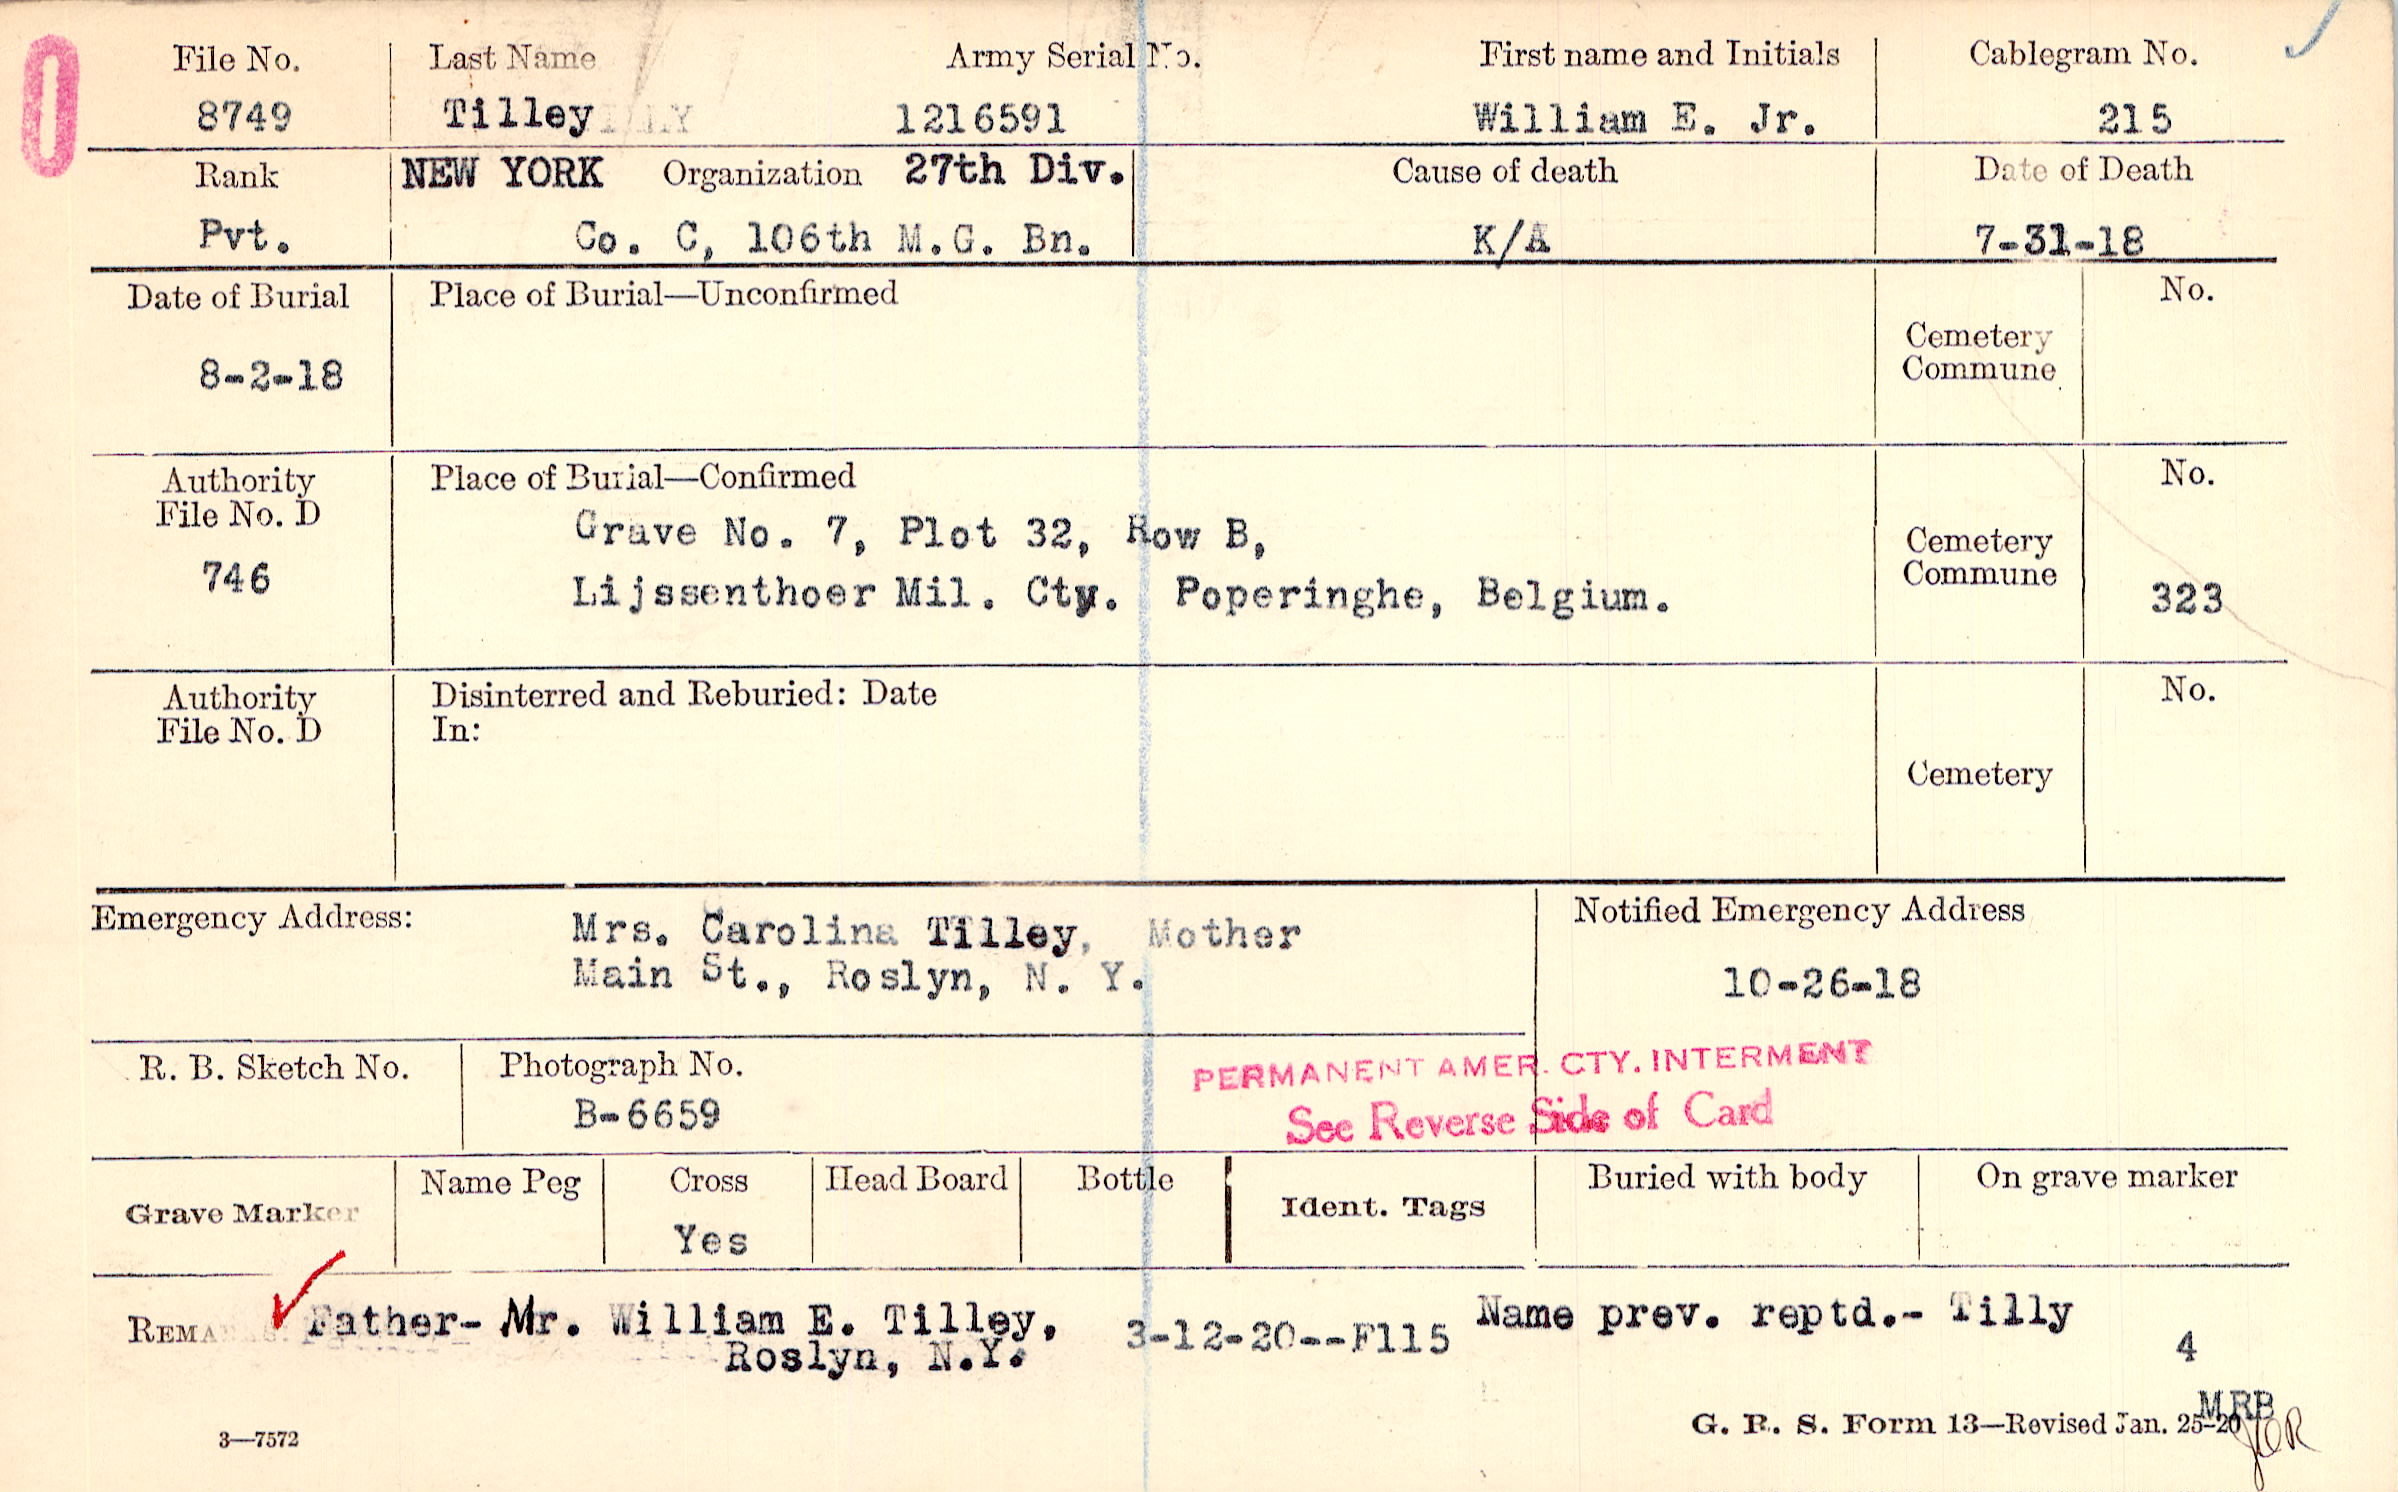 0
File No. Last Name Army Serial No. First name and Initials Cablegram No.
8749 Tilley 1216591 William E. Jr. 215
Rank NEW YORK Organization 27th Div. Cause of death Date of Death
Pvt. Co. C, 106th M.G. Bn. K/A 7-31-18
Date of Burial Place of Burial—Unconfirmed No.
Cemetery
Commune
8-2-18
Authority Place of Burial—Confirmed No.
File No. D
Grave No. 7, Plot 32, Row B, Cemetery
Commune
746 Lijssenthoer Mil. Cty. Poperinghe, Belgium. 323
Authority Disinterred and Reburied: Date No.
File No. D In:
Cemetery
Emergency Address: Mrs. Carolina Tilley, Mother Notified Emergency Address
Main St., Roslyn, N. Y. 10-26-18
R. B. Sketch No. Photograph No. PERMANENT AMER. CTY. INTERMENT
B-6659 See Reverse Side of Card
Grave Marker Name Peg Cross Head Board Bottle Ident. Tags Buried with body On grave marker
Yes
Father- Mr. William E. Tilley, 3-12-20--F115 Name prev. reptd.- Tilly
Roslyn, N.Y. 4
MRB
G. R. S. Form 13—Revised Jan. 25-20
3—7572